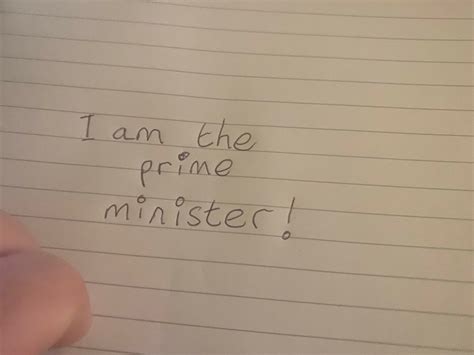 I am the
prime
minister!